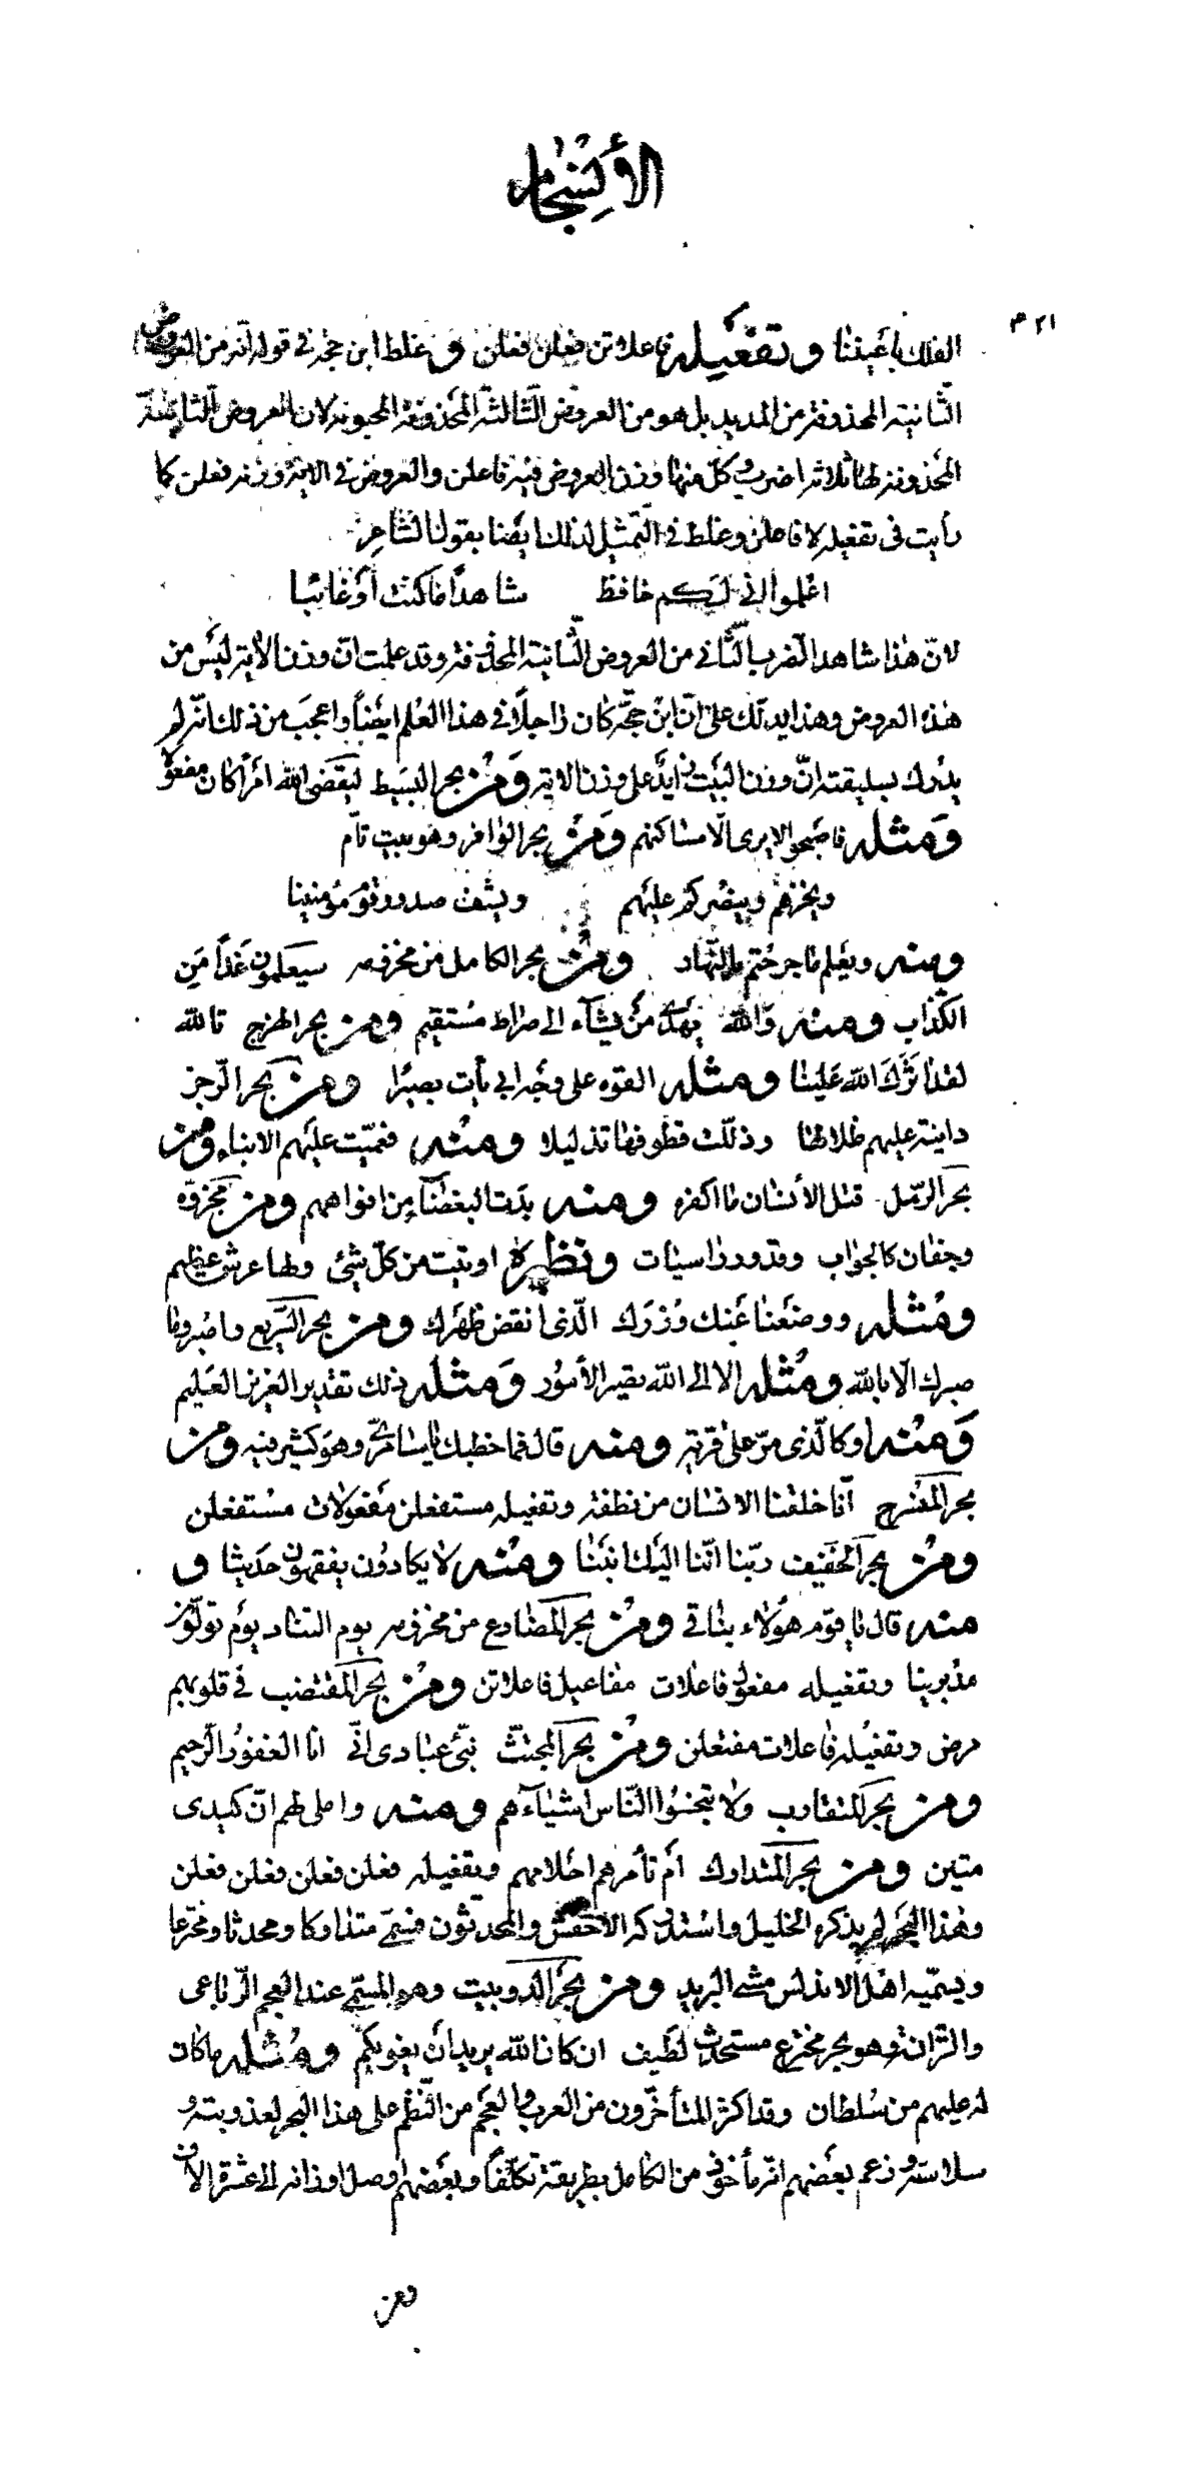 الأنسجام
٣١٢
الفلك باعيننا وتفعيله فاعلاتن فعلن فعلن وغلط ابن حجة في قوله انه من العروض
الثانية المحذوفة من المديد بل هو من العروض الثالثة المحذوفة المخبونة لان العروض الثانية
المحذوفة لها ثلاثة اضرب وكل منها وزن العروض فيه فاعلن والعروض في الاية وزنه فعلن كما
رأيت في تفعيله لا فاعلن وغلط في التمثيل لذلك ايضا بقول الشاعر
اعلموا اني لكم حافظ شاهدا ما كنت أو غائبا
لانّ هذا شاهد الضرب الثاني من العروض الثانية المحذوفة وقد علمت انّ وزن الاية ليس من
هذه العروض وهذا يدلك على انّ ابن حجّة كان راجلًا في هذا العلم ايضًا واعجب من ذلك انّه لم
يدرك بسليقته انّ وزن البيت زايد على وزن الاية ومن بحر البسيط ليقضي الله امرًا كان مفعولا
ومثله فاصبحوا لا يرى الّا مساكنهم ومن بحر الوافر وهو بيت تامّ
ويخزهم وينصركم عليهم ويشف صدور قوم مؤمنينا
ومنه ويعلم ما جرحتم بالنّهار ومن بحر الكامل من مخزومه سيعلمون غدًا مَن
الكذّاب ومنه والله يهدي من يشآء الى صراط مستقيم ومن بحر الهزج تالله
لقد اثرك الله علينا ومثله القوه على وجه ابي يأت بصيرا ومن بحر الرّجز
دانية عليهم ظلالها وذلّلت قطوفها تذليلا ومنه فعمّيت عليهم الانباء ومن
بحر الرّمل قتل الأنسان ما اكفره ومنه بدت البغضآء من افواههم ومن مجزوّه
وجفان كالجواب وقدور راسيات ونظيره اوتيت من كلّ شئ ولها عرش عظيم
ومثله ووضعنا عنك وزرك الّذي انقض ظهرك ومن بحر السّريع واصبر وما
صبرك الّا بالله ومثله الا الى الله تصير الأمور ومثله ذلك تقدير العزيز العليم
ومنه او كالّذي مرّ على قرية ومنه قال فما خطبك يا سامريّ وهو كثير فيه ومن
بحر المنسرح انّا خلقنا الانسان من نطفة وتفعيله مستفعلن مفعولات مستفعلن
ومن بحر الخفيف ربّنا انّنا اليك انبنا ومنه لا يكادون يفقهون حديثا و
منه قال يا قوم هؤلاء بناتي ومن بحر المضارع من مخزومه يوم التناد يوم تولّون
مدبرينا وتفعيله مفعول فاعلات مفاعيل فاعلاتن ومن بحر المقتضب في قلوبهم
مرض وتفعيله فاعلات مفتعلن ومن بحر المجتثّ نبّئ عبادي انّي انا الغفور الرّحيم
ومن بحر المتقارب ولا تبخسوا النّاس اشيآءهم ومنه واملي لهم انّ كيدي
متين ومن بحر المتدارك أم تأمرهم احلامهم وتفعيله فعلن فعلن فعلن فعلن
وهذا البحر لم يذكره الخليل واستدركه الاخفش والمحدثون فسمّي متداركا ومحدثا ومخترعا
ويسمّيه اهل الاندلس مشي البريد ومن بحر الدوبيت وهو المسمّى عند العجم الرّباعي
والترانة وهو بحر مخترع مستحدث لطيف ان كان الله يريد أن يغويكم ومثله ما كان
له عليهم من سلطان وقد اكثر المتأخّرون من العرب والعجم من النّظم على هذا البحر لعذوبته و
سلاسته وزعم بعضهم انّه مأخوذ من الكامل بطريقة تكلّفا وبعضهم اوصل اوزانه الى عشرة الاف
ومن